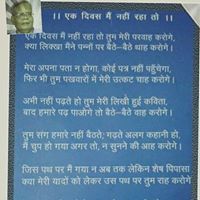 ।। एक दिवस मैं नहीं रहा तो ।।
एक दिवस मैं नहीं रहा तो तुम मेरी परवाह करोगे,
क्या लिक्खा मैंने पन्नों पर बैठे-बैठे चाह करोगे ।
मेरा अपना पता न होगा, कोई पत्र नहीं पहुँचेगा,
फिर भी तुम पखवारों में मेरी उत्कट चाह करोगे ।
अभी नहीं पढ़ते हो तुम मेरी लिखी हुई कविता,
बाद हमारे पढ़ पाओगे तो बैठे-बैठे वाह करोगे ।
तुम संग हमारे नहीं बैठते, गढ़ते अलग कहानी हो,
मैं चुप हो गया अगर तो, न सुनने की आह करोगे ।
जिस पथ पर मैं गया न अब तक लेकिन शेष पिपासा
क्या मेरी यादों को लेकर उस पथ पर तुम राह करोगे